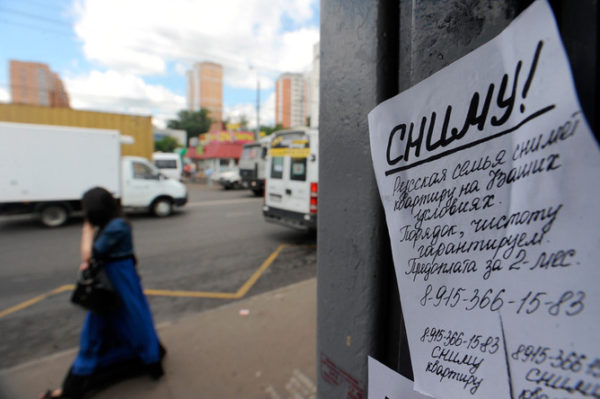 СНИМУ!
Русская семья снимет
квартиру на Ваших
условиях.
Порядок, чистоту
гарантируем.
Предоплата за 2 мес.
8-915-366-15-83
8915-366-1583
СНИМУ
квартиру
8915-366-15
Сниму